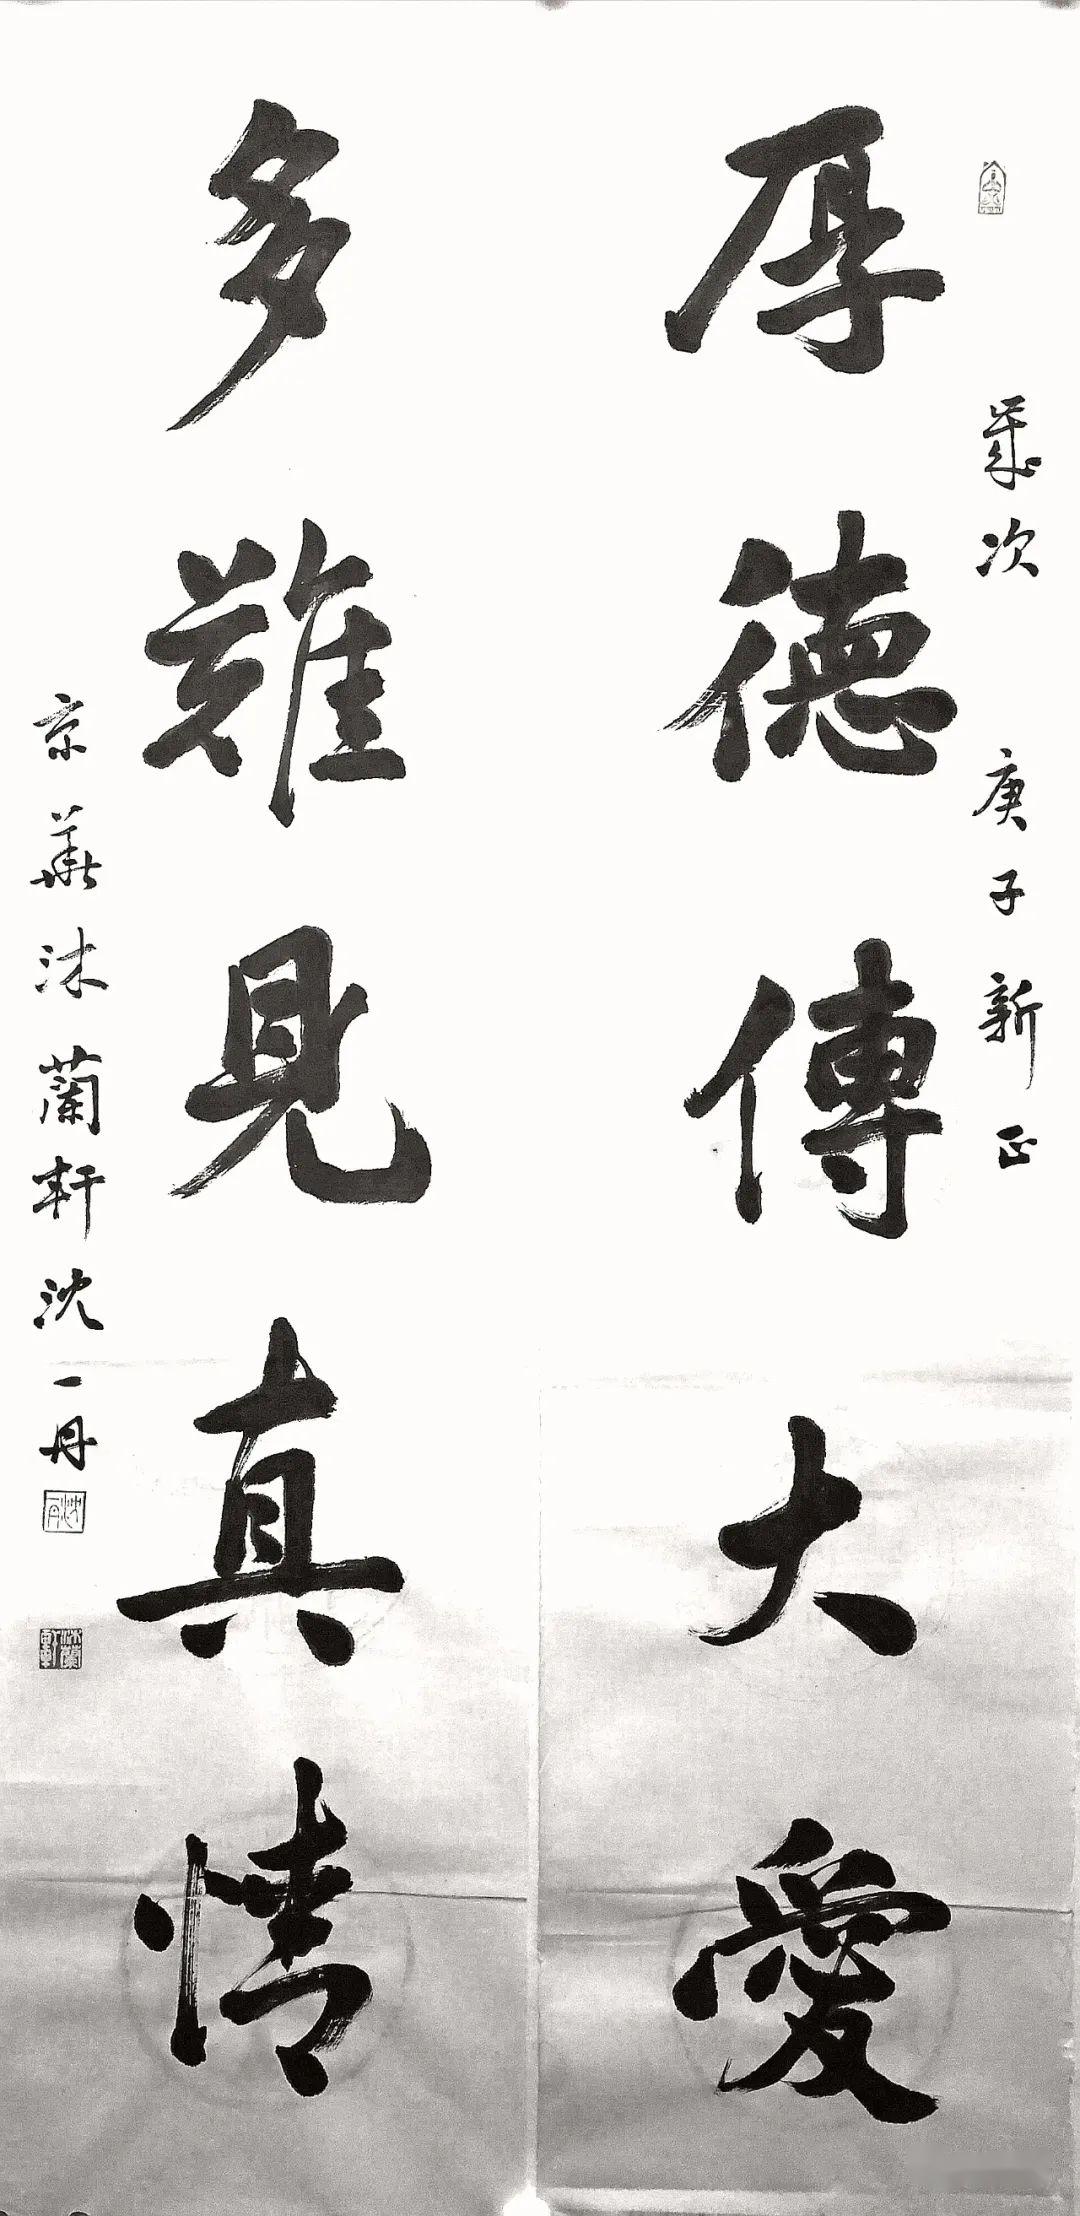 歲次庚子新正
厚德傳大愛
多難見真情
京華沐蘭軒沈一丹
沈一丹
沐蘭軒